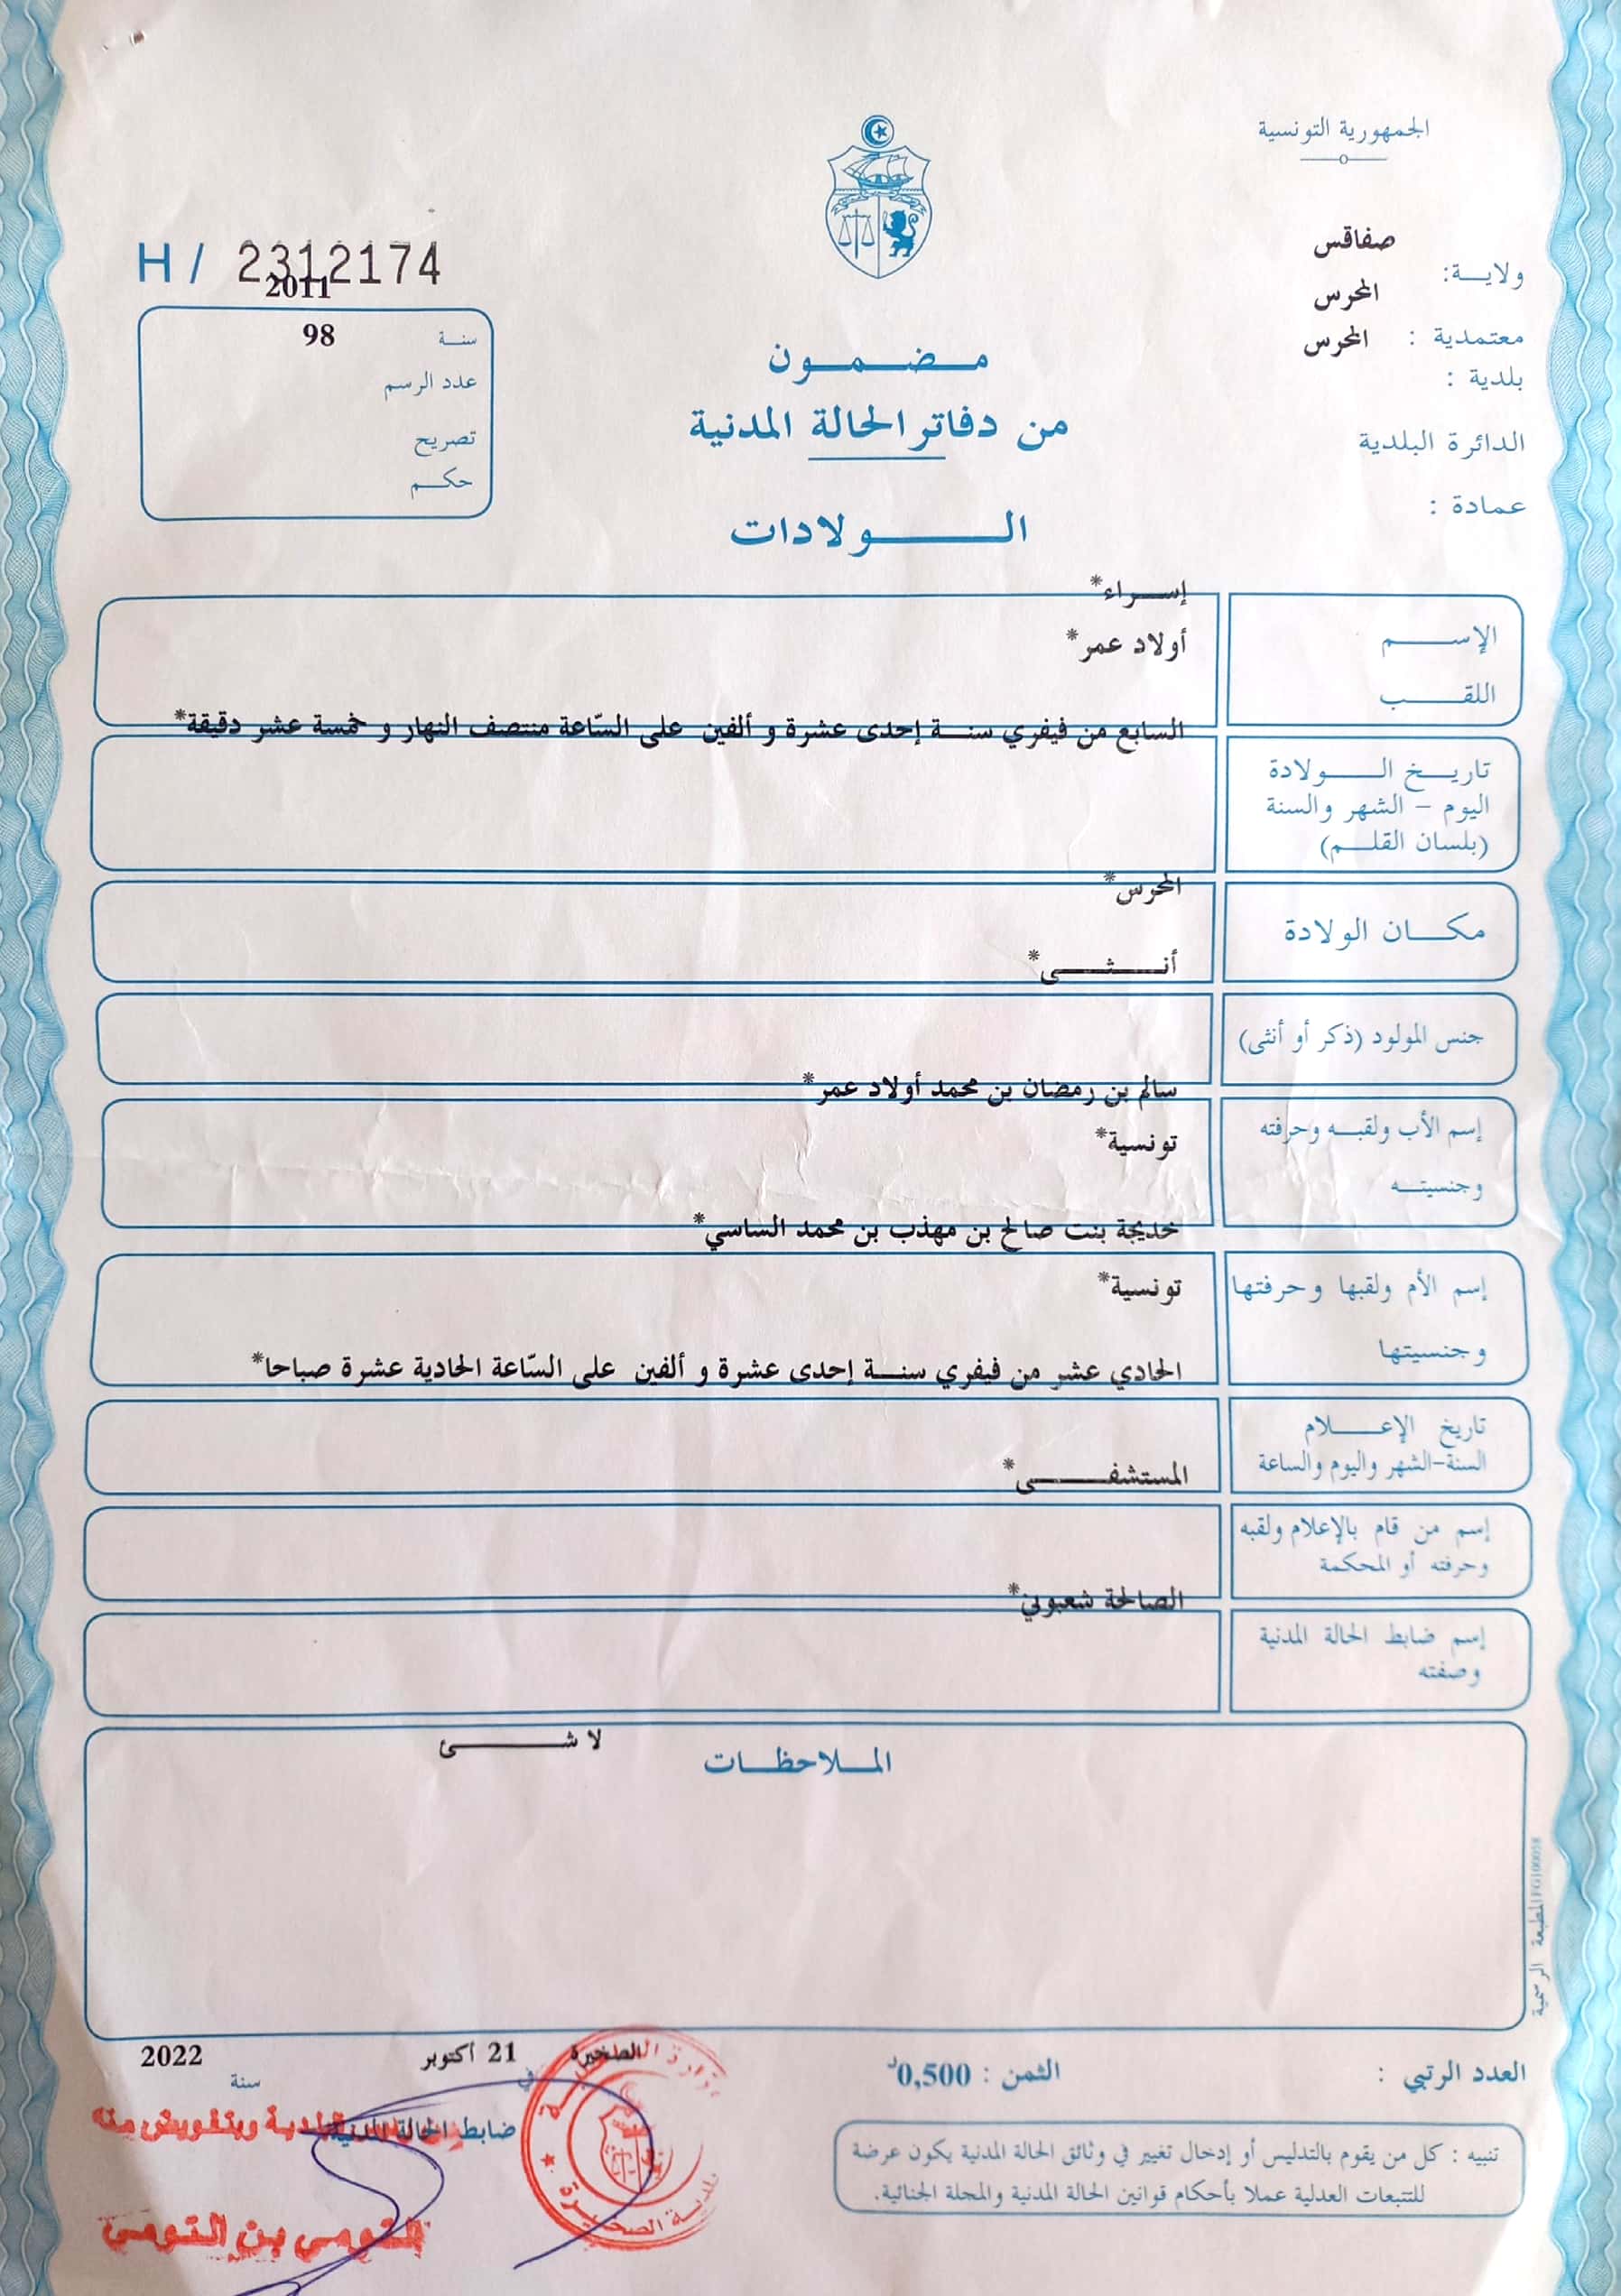 الجمهورية التونسية
صفاقس
ولايــة:
المحرس
معتمدية :
المحرس
بلدية :
الدائرة البلدية
عمادة :
H / 2312174
2011
سنــة
98
عدد الرسم
تصريح
حكــم
مـــضـــمـــون
من دفاتر الحالة المدنية
الـــــــولادات
إســراء*
الإســــم
أولاد عمر*
اللقـــب
السابع من فيفري سنــة إحدى عشرة و ألفين على السّاعة منتصف النهار و خمسة عشر دقيقة*
تاريــخ الـــــولادة
اليوم – الشهر والسنة
(بلسان القلــم)
المحرس*
مكــان الولادة
أنــــثــــى*
جنس المولود (ذكر أو أنثى)
سالم بن رمضان بن محمد أولاد عمر*
إسم الأب ولقبــه وحرفته
تونسية*
وجنسيتــه
خديجة بنت صالح بن مهذب بن محمد الساسي*
إسم الأم ولقبها وحرفتها
تونسية*
وجنسيتها
الحادي عشر من فيفري سنــة إحدى عشرة و ألفين على السّاعة الحادية عشرة صباحا*
تاريخ الإعــــلام
السنة-الشهر واليوم والساعة
المستشفــــــى*
إسم من قام بالإعلام ولقبه
وحرفته أو المحكمة
الصالحة شعبوني*
إسم ضابط الحالة المدنية
وصفته
لا شـــــــئ
المــلاحظــات
المطبعة الرسمية
العدد الرتبي :
الثمن : 0,500د
الصخيرة
في
21 أكتوبر
سنة
2022
ضابط الحالة المدنية
وبتفويض منه
التومي بن التومي
بلدية الصخيرة
تنبيه : كل من يقوم بالتدليس أو إدخال تغيير في وثائق الحالة المدنية يكون عرضة
للتتبعات العدلية عملا بأحكام قوانين الحالة المدنية والمجلة الجنائية.